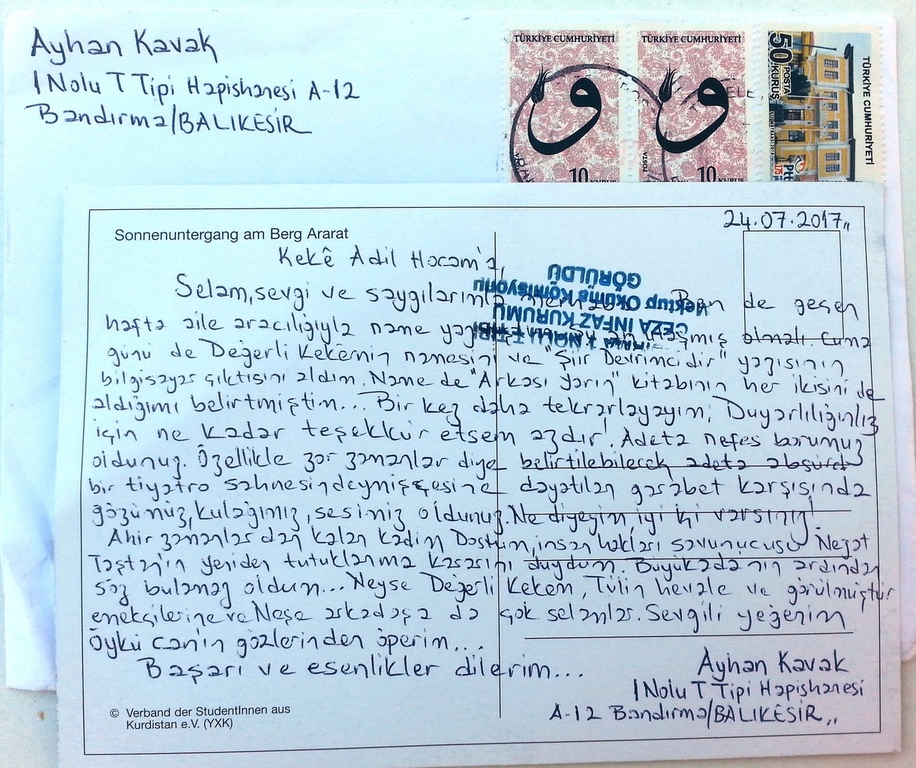 Ayhan Kavak
1 Nolu T Tipi Hapishanesi A-12
Bandırma/BALIKESİR
TÜRKİYE CUMHURİYETİ
10
KURUŞ
TÜRKİYE CUMHURİYETİ
POSTA
10
KURUŞ
50
KURUŞ
POSTA
Ptt
TÜRKİYE CUMHURİYETİ
24.07.2017
Sonnenuntergang am Berg Ararat
Kekê Adil Hocam'a,
Selam, sevgi ve saygılarımla Ben de geçen
hafta aile aracılığıyla name olmalı. Cuma
günü de Değerli Kekemin namesini ve "Şiir Devrimcidir" yazısının
bilgisayar çıktısını aldım. Name de "Arkası Yarın" kitabının her ikisini de
aldığımı belirtmiştim... Bir kez daha tekrarlayayım; Duyarlılığınız
için ne kadar teşekkür etsem azdır! Adeta nefes borumuz
oldunuz. Özellikle zor zamanlar diye belirtilebilecek adeta absürd
bir tiyatro sahnesindeymişçesine dayatılan garabet karşısında
gözümüz, kulağımız, sesimiz oldunuz. Ne diyeyim, iyi ki varsınız!
Ahir zamanlardan kalan kadim Dostum, insan hakları savunucusu Nejat
Taştan'ın yeniden tutuklanma kararını duydum. Büyükada'nın ardından
söz bulamaz oldum... Neyse Değerli Kekem, Tülin hevale ve görülmüştür
emekçilerine ve Neşe arkadaşa da çok selamlar. Sevgili yeğenim
Öykü can'ın gözlerinden öperim...
Başarı ve esenlikler dilerim...
Ayhan Kavak
1 Nolu T Tipi Hapishanesi
A-12 Bandırma/BALIKESİR
CEZA İNFAZ KURUMU
Mektup Okuma Komisyonu
GÖRÜLDÜ
© Verband der StudentInnen aus
Kurdistan e.V. (YXK)